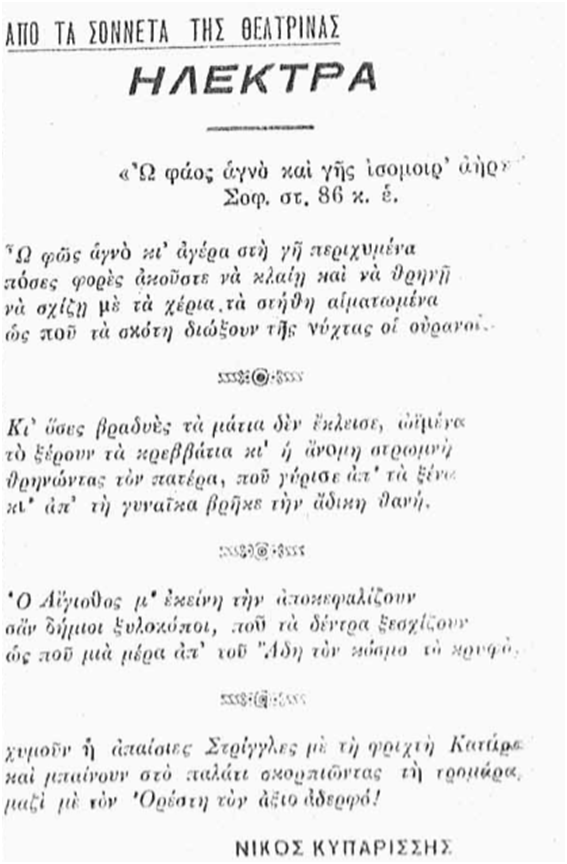 ΑΠΟ ΤΑ ΣΟΝΝΕΤΑ ΤΗΣ ΘΕΑΤΡΙΝΑΣ
ΗΛΕΚΤΡΑ
«Ὦ φάος ἁγνὸ καὶ γῆς ἰσομοιρ' ἀὴρ»
Σοφ. στ. 86 κ. ἑ.
Ὦ φῶς ἁγνὸ κι' ἀγέρα στὴ γῆ περιχυμένα
πόσες φορὲς ἀκοῦστε νὰ κλαίῃ καὶ νὰ θρηνῇ
νὰ σχίζῃ μὲ τὰ χέρια τὰ στήθη αἱματωμένα
ὡς ποῦ τὰ σκότη διώξουν τῆς νύχτας οἱ οὐρανοί.
Κι' ὅσες βραδυὲς τὰ μάτια δὲν ἔκλεισε, ὠϊμένα
τὸ ξέρουν τὰ κρεββάτια κι' ἡ ἄνομη στρωμνὴ
θρηνώντας τὸν πατέρα, ποῦ γύρισε ἀπ' τὰ ξένα
κι' ἀπ' τὴ γυναῖκα βρῆκε τὴν ἄδικη θανή.
Ὁ Αἴγισθος μ' ἐκείνη τὴν ἀποκεφαλίζουν
σὰν δήμιοι ξυλοκόποι, ποῦ τὰ δέντρα ξεσχίζουν
ὡς ποῦ μιὰ μέρα ἀπ' τοῦ Ἅδη τὸν κόσμο τὸ κρυφὸ,
χυμοῦν ἡ ἀπαίσιες Στρίγγλες μὲ τὴ φριχτὴ Κατάρα
καὶ μπαίνουν στὸ παλάτι σκορπιῶντας τὴ τρομάρα,
μαζὶ μὲ τὸν Ὀρέστη τὸν ἄξιο ἀδερφό!
ΝΙΚΟΣ ΚΥΠΑΡΙΣΣΗΣ